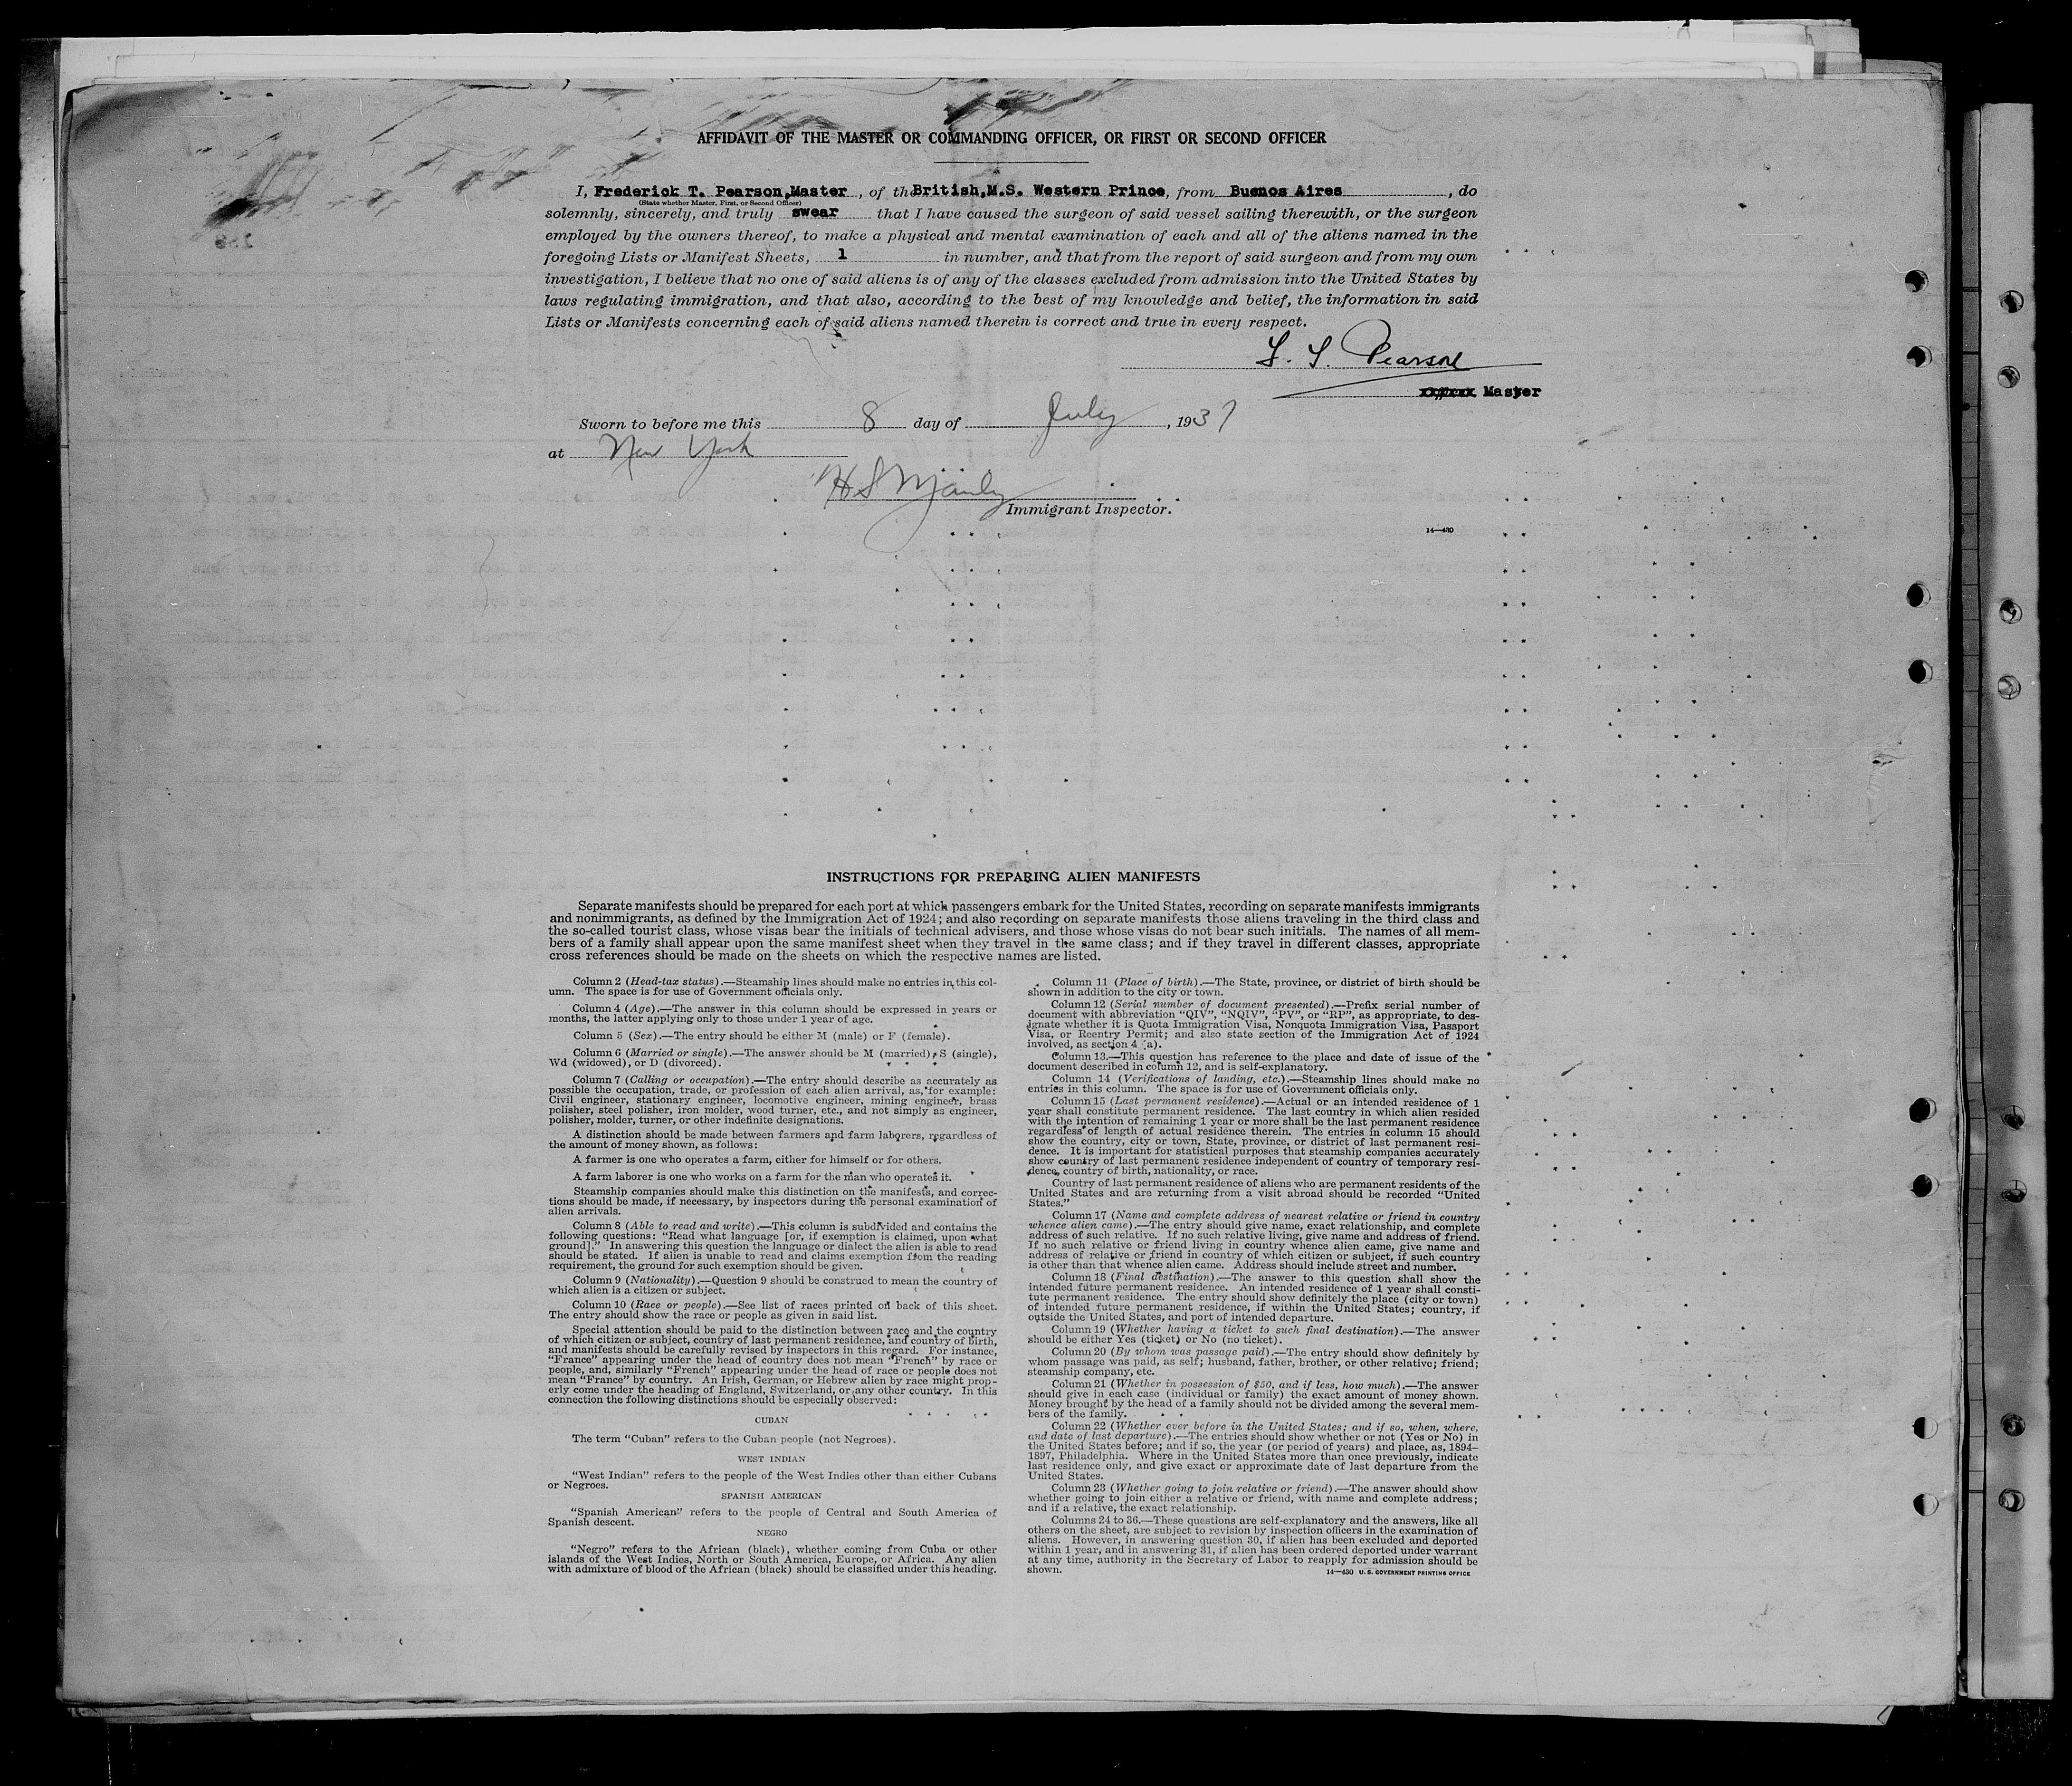 AFFIDAVIT OF THE MASTER OR COMMANDING OFFICER, OR FIRST OR SECOND OFFICER
I, Frederick T. Pearson,Master , of the British,M.S. Western Prince, from Buenos Aires , do
(State whether Master, First, or Second Officer)
solemnly, sincerely, and truly swear that I have caused the surgeon of said vessel sailing therewith, or the surgeon
employed by the owners thereof, to make a physical and mental examination of each and all of the aliens named in the
foregoing Lists or Manifest Sheets, 1 in number, and that from the report of said surgeon and from my own
investigation, I believe that no one of said aliens is of any of the classes excluded from admission into the United States by
laws regulating immigration, and that also, according to the best of my knowledge and belief, the information in said
Lists or Manifests concerning each of said aliens named therein is correct and true in every respect.
Pearson
Master
Sworn to before me this 8 day of July , 1937
at New York
Immigrant Inspector.
14—430
INSTRUCTIONS FOR PREPARING ALIEN MANIFESTS
Separate manifests should be prepared for each port at which passengers embark for the United States, recording on separate manifests immigrants
and nonimmigrants, as defined by the Immigration Act of 1924; and also recording on separate manifests those aliens traveling in the third class and
the so-called tourist class, whose visas bear the initials of technical advisers, and those whose visas do not bear such initials. The names of all mem-
bers of a family shall appear upon the same manifest sheet when they travel in the same class; and if they travel in different classes, appropriate
cross references should be made on the sheets on which the respective names are listed.
Column 2 (Head-tax status).—Steamship lines should make no entries in this col-
umn. The space is for use of Government officials only.
Column 4 (Age).—The answer in this column should be expressed in years or
months, the latter applying only to those under 1 year of age.
Column 5 (Sex).—The entry should be either M (male) or F (female).
Column 6 (Married or single).—The answer should be M (married), S (single),
Wd (widowed), or D (divorced).
Column 7 (Calling or occupation).—The entry should describe as accurately as
possible the occupation, trade, or profession of each alien arrival, as, for example:
Civil engineer, stationary engineer, locomotive engineer, mining engineer, brass
polisher, steel polisher, iron molder, wood turner, etc., and not simply as engineer,
polisher, molder, turner, or other indefinite designations.
A distinction should be made between farmers and farm laborers, regardless of
the amount of money shown, as follows:
A farmer is one who operates a farm, either for himself or for others.
A farm laborer is one who works on a farm for the man who operates it.
Steamship companies should make this distinction on the manifests, and correc-
tions should be made, if necessary, by inspectors during the personal examination of
alien arrivals.
Column 8 (Able to read and write).—This column is subdivided and contains the
following questions: “Read what language [or, if exemption is claimed, upon what
ground].” In answering this question the language or dialect the alien is able to read
should be stated. If alien is unable to read and claims exemption from the reading
requirement, the ground for such exemption should be given.
Column 9 (Nationality).—Question 9 should be construed to mean the country of
which alien is a citizen or subject.
Column 10 (Race or people).—See list of races printed on back of this sheet.
The entry should show the race or people as given in said list.
Special attention should be paid to the distinction between race and the country
of which citizen or subject, country of last permanent residence, and country of birth,
and manifests should be carefully revised by inspectors in this regard. For instance,
“France” appearing under the head of country does not mean “French” by race or
people, and, similarly “French” appearing under the head of race or people does not
mean “France” by country. An Irish, German, or Hebrew alien by race might prop-
erly come under the heading of England, Switzerland, or any other country. In this
connection the following distinctions should be especially observed:
CUBAN
The term “Cuban” refers to the Cuban people (not Negroes).
WEST INDIAN
“West Indian” refers to the people of the West Indies other than either Cubans
or Negroes.
SPANISH AMERICAN
“Spanish American” refers to the people of Central and South America of
Spanish descent.
NEGRO
“Negro” refers to the African (black), whether coming from Cuba or other
islands of the West Indies, North or South America, Europe, or Africa. Any alien
with admixture of blood of the African (black) should be classified under this heading.
Column 11 (Place of birth).—The State, province, or district of birth should be
shown in addition to the city or town.
Column 12 (Serial number of document presented).—Prefix serial number of
document with abbreviation “QIV”, “NQIV”, “PV”, or “RP”, as appropriate, to des-
ignate whether it is Quota Immigration Visa, Nonquota Immigration Visa, Passport
Visa, or Reentry Permit; and also state section of the Immigration Act of 1924
involved, as section 4 (a).
Column 13.—This question has reference to the place and date of issue of the
document described in column 12, and is self-explanatory.
Column 14 (Verifications of landing, etc.).—Steamship lines should make no
entries in this column. The space is for use of Government officials only.
Column 15 (Last permanent residence).—Actual or an intended residence of 1
year shall constitute permanent residence. The last country in which alien resided
with the intention of remaining 1 year or more shall be the last permanent residence
regardless of length of actual residence therein. The entries in column 15 should
show the country, city or town, State, province, or district of last permanent resi-
dence. It is important for statistical purposes that steamship companies accurately
show country of last permanent residence independent of country of temporary resi-
dence, country of birth, nationality, or race.
Country of last permanent residence of aliens who are permanent residents of the
United States and are returning from a visit abroad should be recorded “United
States.”
Column 17 (Name and complete address of nearest relative or friend in country
whence alien came).—The entry should give name, exact relationship, and complete
address of such relative. If no such relative living, give name and address of friend.
If no such relative or friend living in country whence alien came, give name and
address of relative or friend in country of which citizen or subject, if such country
is other than that whence alien came. Address should include street and number.
Column 18 (Final destination).—The answer to this question shall show the
intended future permanent residence. An intended residence of 1 year shall consti-
tute permanent residence. The entry should show definitely the place (city or town)
of intended future permanent residence, if within the United States; country, if
outside the United States, and port of intended departure.
Column 19 (Whether having a ticket to such final destination).—The answer
should be either Yes (ticket) or No (no ticket).
Column 20 (By whom was passage paid).—The entry should show definitely by
whom passage was paid, as self; husband, father, brother, or other relative; friend;
steamship company, etc.
Column 21 (Whether in possession of $50, and if less, how much).—The answer
should give in each case (individual or family) the exact amount of money shown.
Money brought by the head of a family should not be divided among the several mem-
bers of the family.
Column 22 (Whether ever before in the United States; and if so, when, where,
and date of last departure).—The entries should show whether or not (Yes or No) in
the United States before; and if so, the year (or period of years) and place, as, 1894–
1897, Philadelphia. Where in the United States more than once previously, indicate
last residence only, and give exact or approximate date of last departure from the
United States.
Column 23 (Whether going to join relative or friend).—The answer should show
whether going to join either a relative or friend, with name and complete address;
and if a relative, the exact relationship.
Columns 24 to 36.—These questions are self-explanatory and the answers, like all
others on the sheet, are subject to revision by inspection officers in the examination of
aliens. However, in answering question 30, if alien has been excluded and deported
within 1 year, and in answering 31, if alien has been ordered deported under warrant
at any time, authority in the Secretary of Labor to reapply for admission should be
shown.
14—430 U. S. GOVERNMENT PRINTING OFFICE